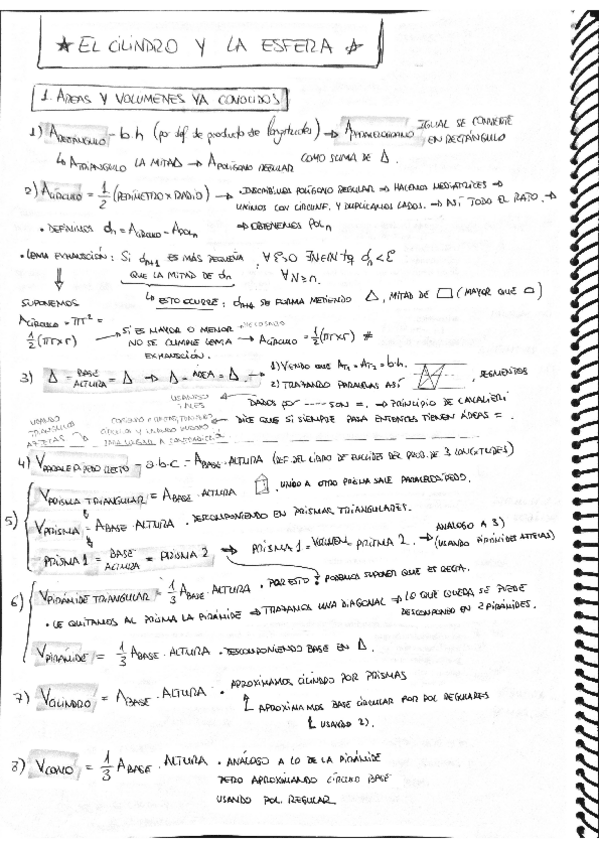 ★ EL CILINDRO Y LA ESFERA ★
1. ÁREAS Y VOLUMENES YA CONOCIDOS
1) A RECTÁNGULO = b·h (por def de producto de longitudes) → A PARALELOGRAMO IGUAL SE CONVIERTE EN RECTÁNGULO
↳ A TRIANGULO LA MITAD → A POLÍGONO REGULAR COMO SUMA DE Δ.
2) A CÍRCULO = 1/2 (PERÍMETRO × RADIO) → INSCRIBIMOS POLÍGONO REGULAR → HACEMOS MEDIATRICES →
UNIMOS CON CIRCUNF. Y DUPLICAMOS LADOS. → ASÍ TODO EL RATO. →
• DEFINIMOS dn = A CÍRCULO - A POLn → OBTENEMOS POLn
• LEMA EXHAUSCIÓN: SI dn+1 ES MÁS PEQUEÑA QUE LA MITAD DE dn, ∀ε>0 ∃N∈ℕ tq dn<ε ∀N≥n.
SUPONEMOS ↳ ESTO OCURRE: dn+1 SE FORMA METIENDO Δ, MITAD DE ▭ (MAYOR QUE ⌓)
A CÍRCULO = πr² =
1/2 (πr×r) → SI ES MAYOR O MENOR NO SE CUMPLE LEMA EXHAUSCIÓN. → A CÍRCULO = 1/2 (πr×r) #
3) Δ = BASE ALTURA = Δ → Δ = AREA = Δ. 1) VIENDO QUE AT1 = AT2 = b·h.
2) TRAZANDO PARALELAS ASÍ, SEGMENTOS
USANDO TALES DADOS POR ---- SON =. → PRINCIPIO DE CAVALIERI
DICE QUE SI SIEMPRE PASA ENTONCES TIENEN ÁREAS =.
4) V PARALELEPÍPEDO RECTO = a·b·c = A BASE · ALTURA (DEF. DEL LIBRO DE EUCLIDES DEL PROD. DE 3 LONGITUDES)
5) V PRISMA TRIANGULAR = A BASE · ALTURA, UNIDO A OTRO PRISMA SALE PARALELEPÍPEDO.
V PRISMA = A BASE · ALTURA. DESCOMPONIENDO EN PRISMAS TRIANGULARES.
PRISMA 1 = BASE ALTURA = PRISMA 2 → PRISMA 1 = VOLUMEN = PRISMA 2. → ANALOGO A 3) (USANDO PIRÁMIDES AZTECAS)
6) V PIRÁMIDE TRIANGULAR = 1/3 A BASE · ALTURA • POR ESTO ↑ PODEMOS SUPONER QUE ES RECTA.
• LE QUITAMOS AL PRISMA LA PIRÁMIDE → TRAZAMOS UNA DIAGONAL → LO QUE QUEDA SE PUEDE DESCOMPONER EN 2 PIRÁMIDES.
V PIRÁMIDE = 1/3 A BASE · ALTURA • DESCOMPONIENDO BASE EN Δ.
7) V CILINDRO = A BASE · ALTURA • APROXIMAMOS CILINDRO POR PRISMAS
↳ APROXIMAMOS BASE CIRCULAR POR POL REGULARES
↳ USANDO 2).
8) V CONO = 1/3 A BASE · ALTURA • ANÁLOGO A LO DE LA PIRÁMIDE
PERO APROXIMANDO CÍRCULO BASE
USANDO POL. REGULAR